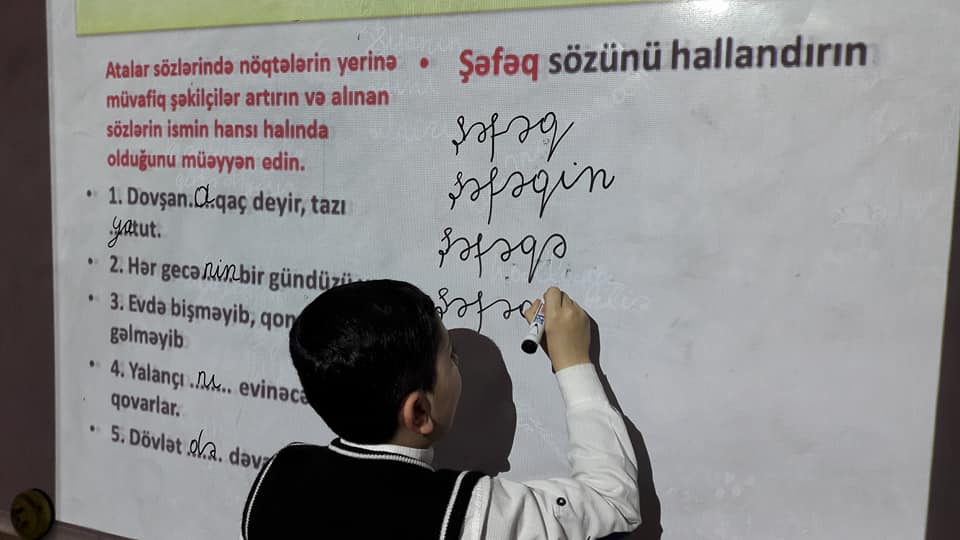 Atalar sözlərində nöqtələrin yerinə
müvafiq şəkilçilər artırın və alınan
sözlərin ismin hansı halında
olduğunu müəyyən edin.
• 1. Dovşan..a..qaç deyir, tazı
..ya..tut.
• 2. Hər gecə nin bir gündüzü
• 3. Evdə bişməyib, qon
gəlməyib
• 4. Yalançı ..nı.. evinəcə
qovarlar.
• 5. Dövlət .də.. dəvə
• Şəfəq sözünü hallandırın
şəfəq
şəfəqin
şəfəqə
şəfəq